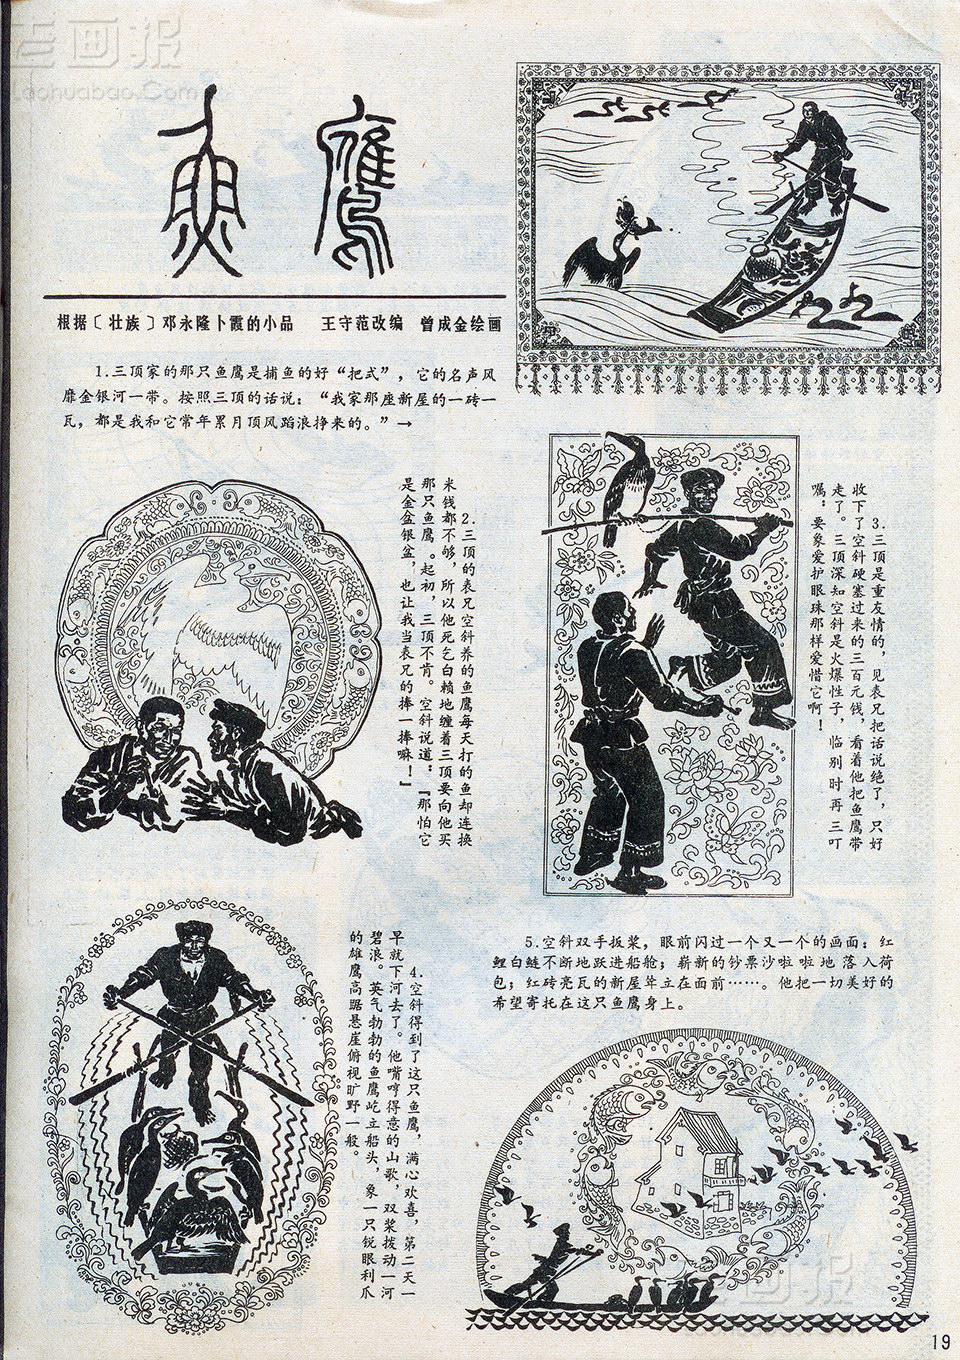 老画报
Laohuabao.Com
鱼鹰
根据〔壮族〕邓永隆卜霞的小品 王守范改编 曾成金绘画
1.三顶家的那只鱼鹰是捕鱼的好“把式”，它的名声风
靡金银河一带。按照三顶的话说：“我家那座新屋的一砖一
瓦，都是我和它常年累月顶风蹈浪挣来的。”→
2.三顶的表兄空斜养的鱼鹰每天打的鱼却连换
米钱都不够，所以他死乞白赖地缠着三顶要向他买
那只鱼鹰。起初，三顶不肯。空斜说道：『那怕它
是金盆银盆，也让我当表兄的捧一捧嘛！』
3.三顶是重友情的，见表兄把话说绝了，只好
收下了空斜硬塞过来的三百元钱，看着他把鱼鹰带
走了。三顶深知空斜是火爆性子，临别时再三叮
嘱：要象爱护眼珠那样爱惜它啊！
4.空斜得到了这只鱼鹰，满心欢喜，第二天一
早就下河去了。他嘴哼得意的山歌，双桨拨动一河
碧浪。英气勃勃的鱼鹰屹立船头，象一只锐眼利爪
的雄鹰高踞悬崖俯视旷野一般。
5.空斜双手扳桨，眼前闪过一个又一个的画面：红
鲤白鲢不断地跃进船舱；崭新的钞票沙啦啦地落入荷
包；红砖亮瓦的新屋耸立在面前……。他把一切美好的
希望寄托在这只鱼鹰身上。
老画报
19